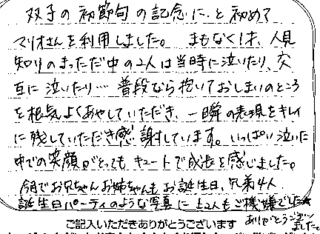 双子の初節句の記念に、と初めて
マリオさんを利用しました。まもなく1才、人見
知りのまっただ中の2人は当時に泣いたり、交
互に泣いたり…普段なら抱いておしまいのところ
を根気よくあやしていただき、一瞬の表現をキレイ
に残していただき感謝しています。いっぱい泣いた
中での笑顔がとってもキュートで成長を感じました。
お兄ちゃんお姉ちゃんもお誕生日、兄弟4人
誕生日パーティのような写真に上2人もご機嫌でした
ありがとうございました。
ご記入いただきありがとうございます